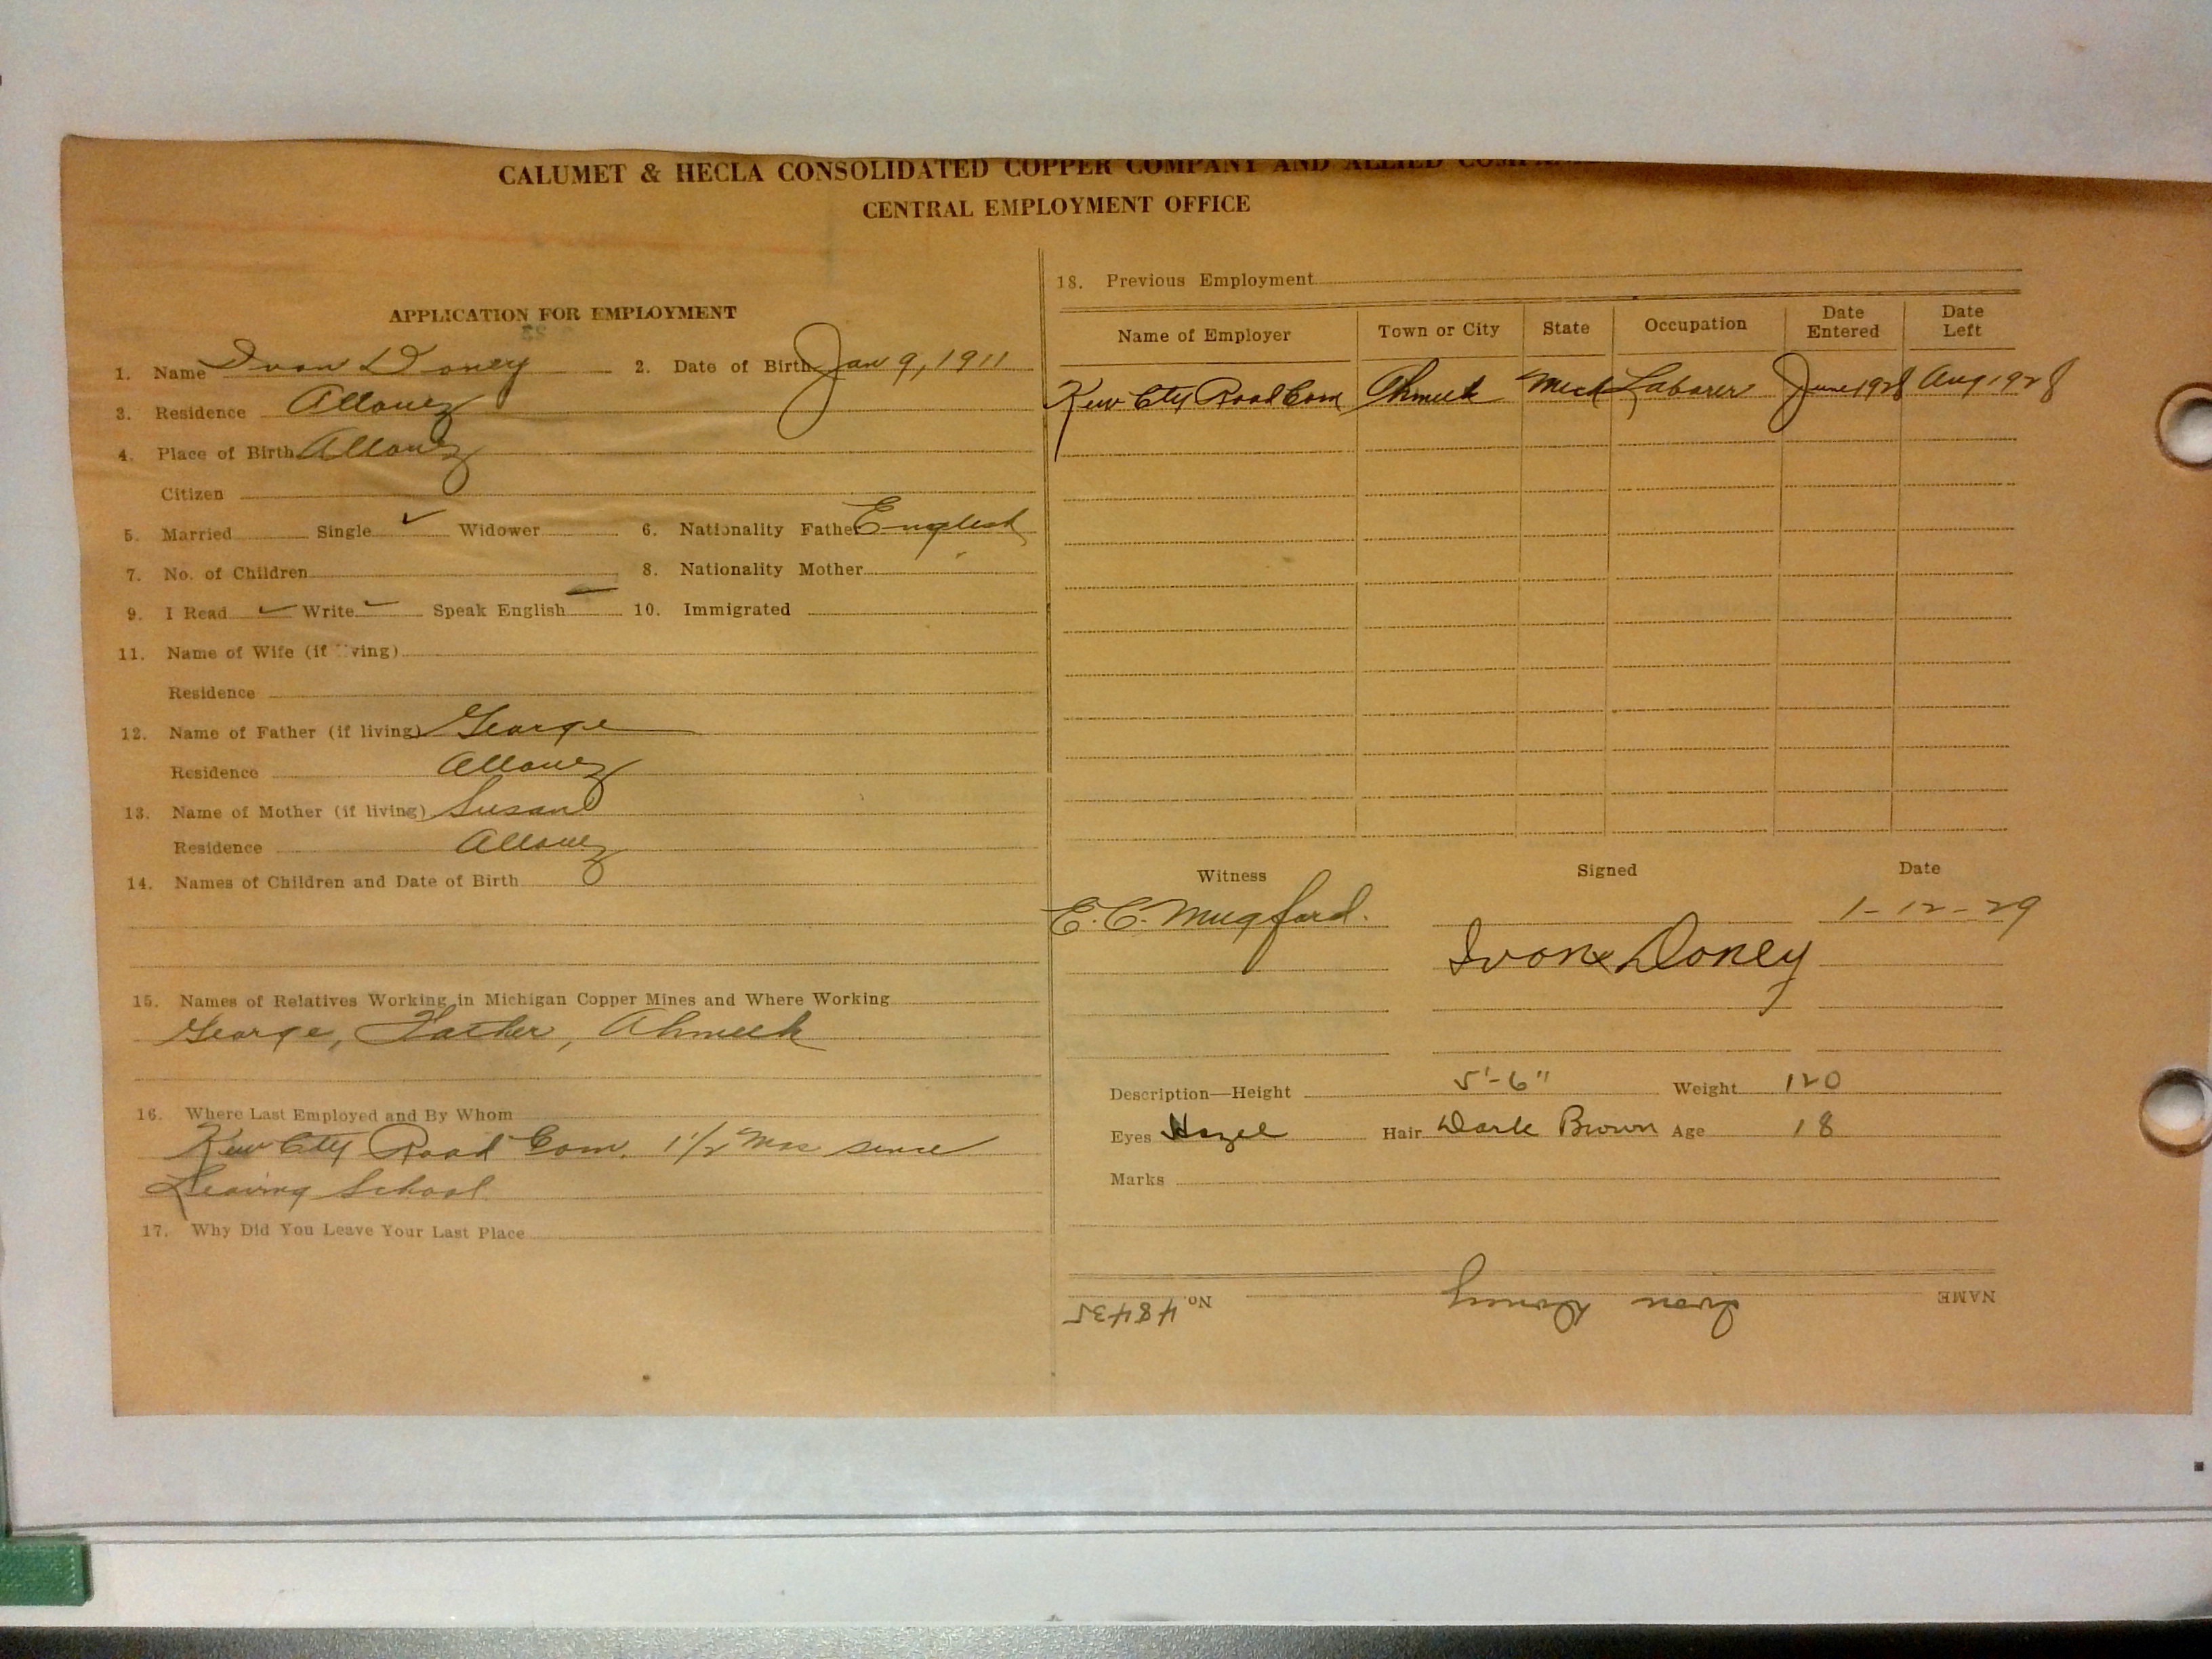 CALUMET & HECLA CONSOLIDATED COPPER COMPANY AND ALLIED
CENTRAL EMPLOYMENT OFFICE
APPLICATION FOR EMPLOYMENT
1. Name Ivon Doney 2. Date of Birth Jan 9, 1911
3. Residence Allouez
4. Place of Birth Allouez
Citizen
5. Married Single ✓ Widower 6. Nationality Father English
7. No. of Children 8. Nationality Mother
9. I Read ✓ Write ✓ Speak English 10. Immigrated
11. Name of Wife (if living)
Residence
12. Name of Father (if living) George
Residence Allouez
13. Name of Mother (if living) Susan
Residence Allouez
14. Names of Children and Date of Birth
15. Names of Relatives Working in Michigan Copper Mines and Where Working
George, Father, Ahmeek
16. Where Last Employed and By Whom
Kew Cty Road Com. 1 1/2 Mos since
Leaving School
17. Why Did You Leave Your Last Place
18. Previous Employment
Name of Employer Town or City State Occupation Date Entered Date Left
Kew Cty Road Com Ahmeek Mich Laborer June 1928 Aug 1928
Witness Signed Date
E. C. Mugford. 1-12-29
Ivon Doney
Description—Height 5'-6" Weight 120
Eyes Hazel Hair Dark Brown Age 18
Marks
NAME Ivon Doney No. 48435